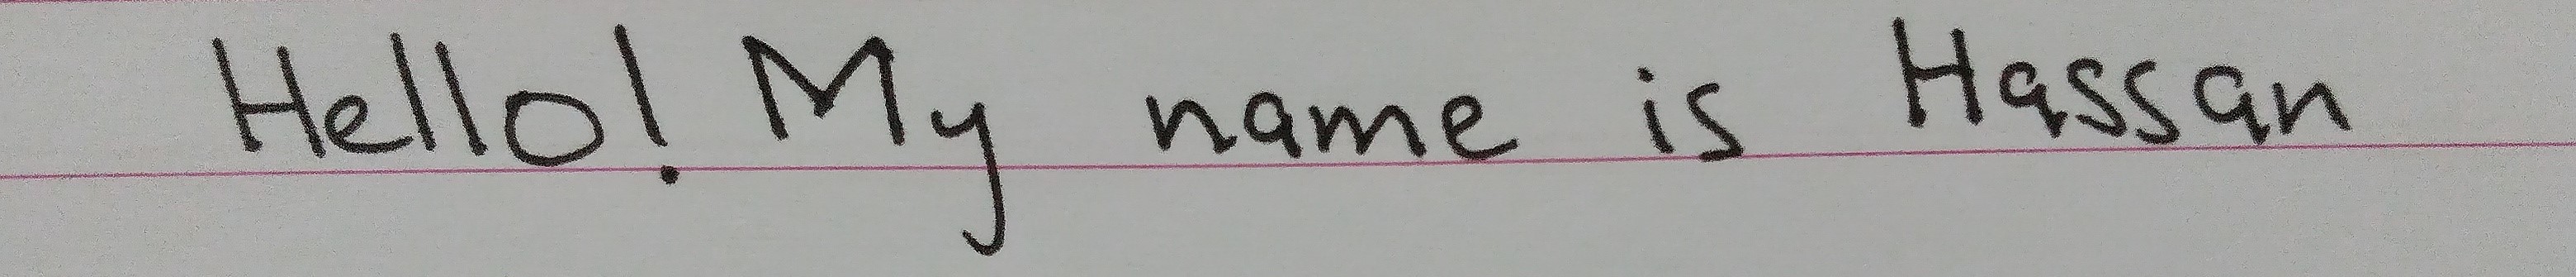 Hello! My name is Hassan